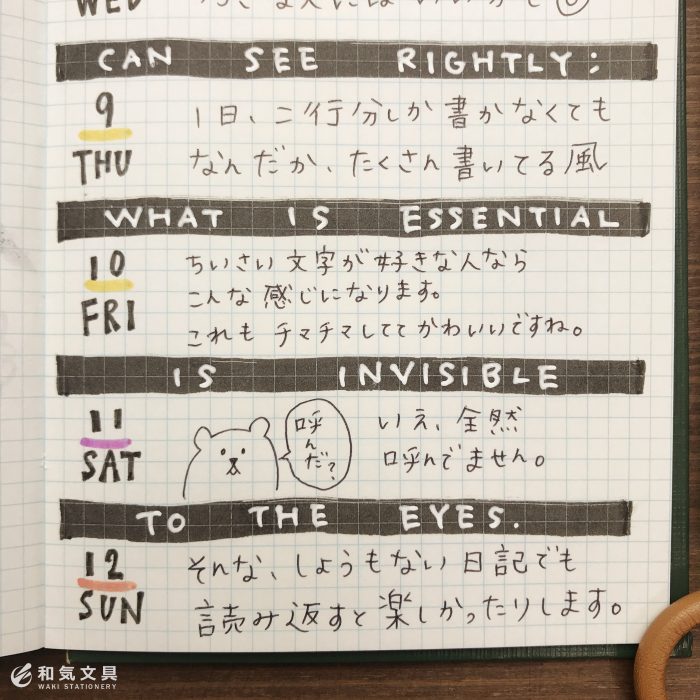 WED
CAN SEE RIGHTLY:
9
THU
1日、二行分しか書かなくても
なんだか、たくさん書いてる風
WHAT IS ESSENTIAL
10
FRI
ちいさい文字が好きな人なら
こんな感じになります。
これもチマチマしててかわいいですね。
IS INVISIBLE
11
SAT
呼んだ?
いえ、全然
呼んでません。
TO THE EYES.
12
SUN
それな、しょうもない日記でも
読み返すと楽しかったりします。
和気文具
WAKI STATIONERY